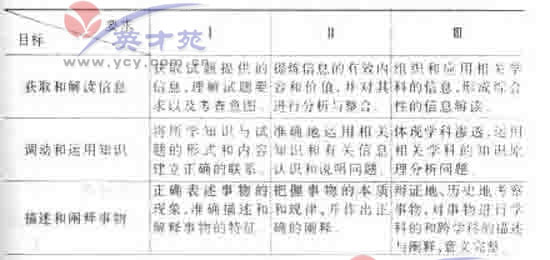 要求
目标
Ⅰ
Ⅱ
Ⅲ
英才苑
www.ycy.com.cn
获取和解读信息
获取试题提供的
信息,理解试题要
求以及考查意图。
提炼信息的有效内
容和价值,并对其
进行分析与整合。
组织和应用相关学
科的信息,形成综合
性的信息解读。
调动和运用知识
将所学知识与试
题的形式和内容
建立正确的联系。
准确地运用相关
知识和有关信息
认识和说明问题。
体现学科渗透,运用
相关学科的知识原
理分析问题。
描述和阐释事物
正确表述事物的
现象,准确描述和
解释事物的特征。
把握事物的本质
和规律,并作出正
确的阐释。
辩证地、历史地考察
事物,对事物进行学
科的和跨学科的描述
与阐释,意义完整。